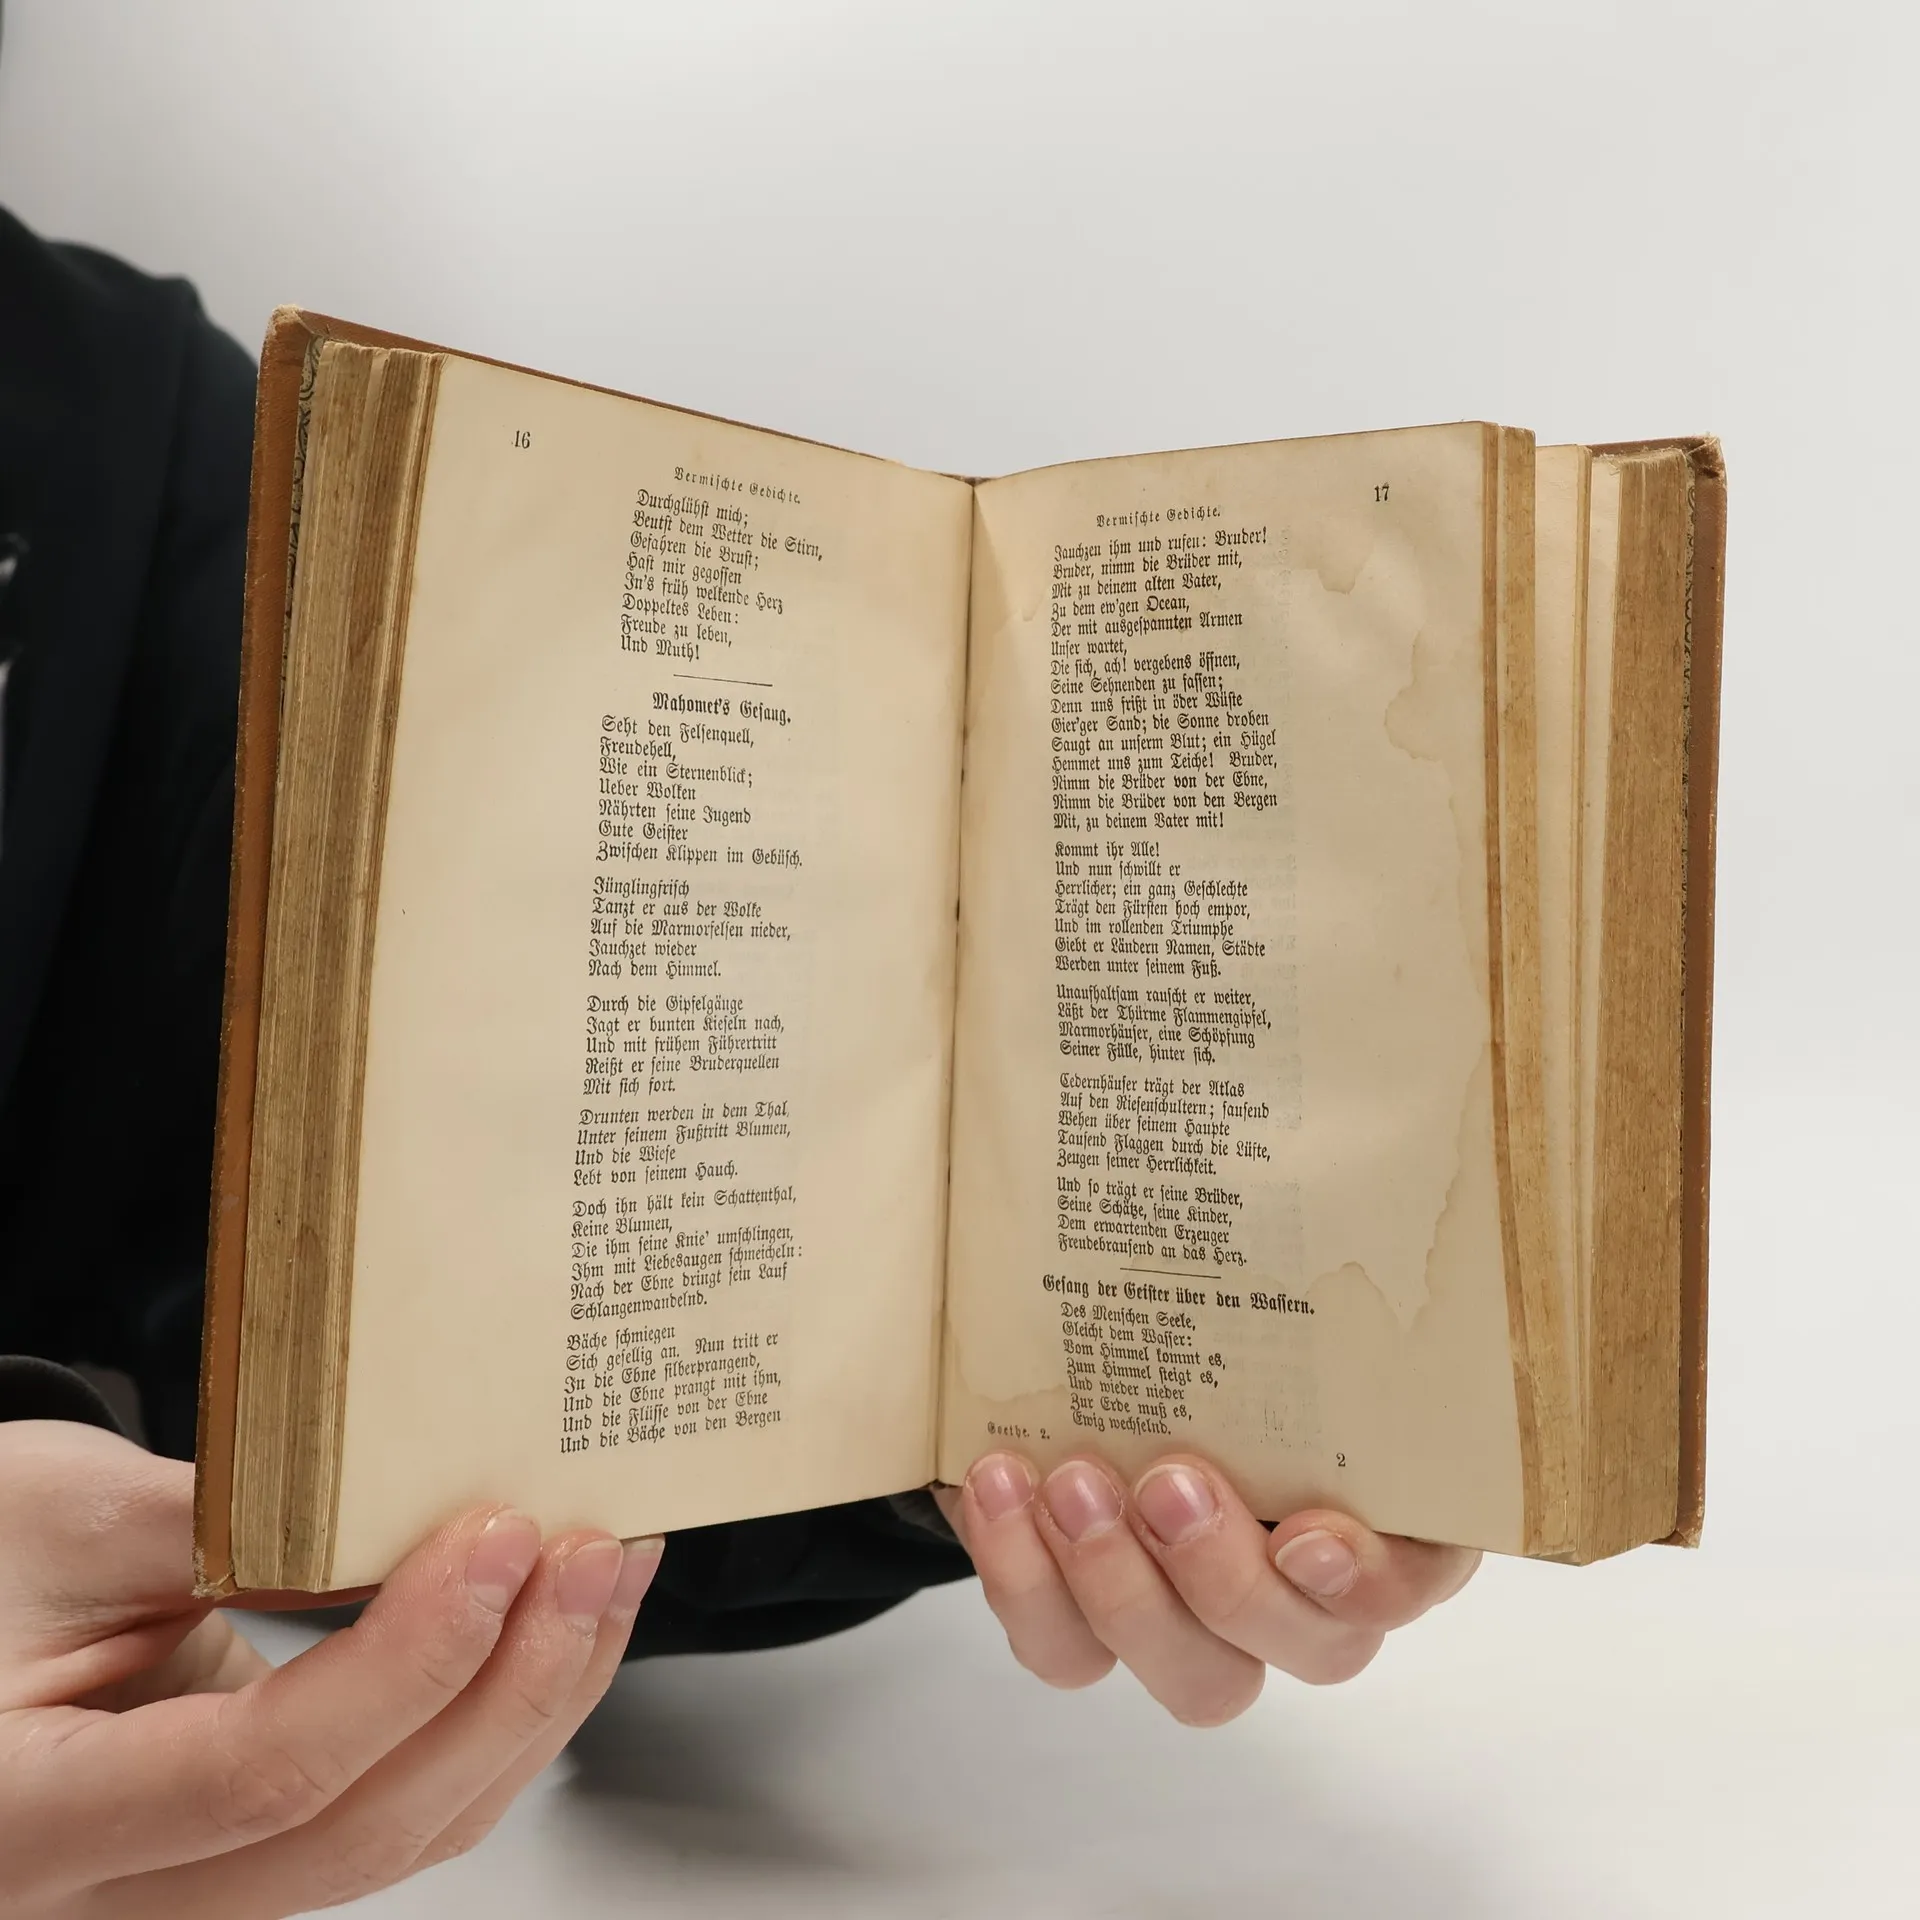 16
Vermischte Gedichte.
Durchglühst mich;
Beutst dem Wetter die Stirn,
Gefahren die Brust;
Hast mir gegossen
In's früh welkende Herz
Doppeltes Leben:
Freude zu leben,
Und Muth!
Mahomet's Gesang.
Seht den Felsenquell,
Freudehell,
Wie ein Sternenblick;
Ueber Wolken
Nährten seine Jugend
Gute Geister
Zwischen Klippen im Gebüsch.
Jünglingfrisch
Tanzt er aus der Wolke
Auf die Marmorfelsen nieder,
Jauchzet wieder
Nach dem Himmel.
Durch die Gipfelgänge
Jagt er bunten Kieseln nach,
Und mit frühem Führertritt
Reißt er seine Bruderquellen
Mit sich fort.
Drunten werden in dem Thal
Unter seinem Fußtritt Blumen,
Und die Wiese
Lebt von seinem Hauch.
Doch ihn hält kein Schattenthal,
Keine Blumen,
Die ihm seine Knie' umschlingen,
Ihm mit Liebesaugen schmeicheln:
Nach der Ebne dringt sein Lauf
Schlangenwandelnd.
Bäche schmiegen
Sich gesellig an. Nun tritt er
In die Ebne silberprangend,
Und die Ebne prangt mit ihm,
Und die Flüsse von der Ebne
Und die Bäche von den Bergen
17
Vermischte Gedichte.
Jauchzen ihm und rufen: Bruder!
Bruder, nimm die Brüder mit,
Mit zu deinem alten Vater,
Zu dem ew'gen Ocean,
Der mit ausgespannten Armen
Unser wartet,
Die sich, ach! vergebens öffnen,
Seine Sehnenden zu fassen;
Denn uns frißt in öder Wüste
Gier'ger Sand; die Sonne droben
Saugt an unserm Blut; ein Hügel
Hemmet uns zum Teiche! Bruder,
Nimm die Brüder von der Ebne,
Nimm die Brüder von den Bergen
Mit, zu deinem Vater mit!
Kommt ihr Alle!
Und nun schwillt er
Herrlicher; ein ganz Geschlechte
Trägt den Fürsten hoch empor,
Und im rollenden Triumphe
Giebt er Ländern Namen, Städte
Werden unter seinem Fuß.
Unaufhaltsam rauscht er weiter,
Läßt der Thürme Flammengipfel,
Marmorhäuser, eine Schöpfung
Seiner Fülle, hinter sich.
Cedernhäuser trägt der Atlas
Auf den Riesenschultern; sausend
Wehen über seinem Haupte
Tausend Flaggen durch die Lüfte,
Zeugen seiner Herrlichkeit.
Und so trägt er seine Brüder,
Seine Schätze, seine Kinder,
Dem erwartenden Erzeuger
Freudebrausend an das Herz.
Gesang der Geister über den Wassern.
Des Menschen Seele,
Gleicht dem Wasser:
Vom Himmel kommt es,
Zum Himmel steigt es,
Und wieder nieder
Zur Erde muß es,
Ewig wechselnd.
Goethe. 2.
2